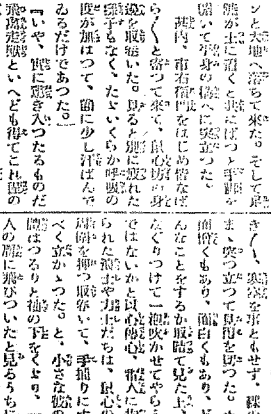 ンと大地へ落ちて來た。そして足
が土に着くと共にぱつと手を
開いて平身の構へに突立つた。
甚内、市右衛門をはじめ皆なば
ら〳〵と寄つて來て、良心坊の身
邊を取卷いた。見ると別に疲れた
樣子もなく、たゞいくらか呼吸の
度が加はつて、額に少し汗ばんで
ゐるだけであつた。
『いや、實に驚き入つたるものだ
飛鳥走獸といへども得てこれ程の
き〳〵、寒氣を事ともせず、裸の
まゝ突つ立つて見得を切つた。
面憎くもあり、面白くもあり、
んなことをするか取て見た上、
なぐりつけて一泡吹かせてやらう
ではないかと良心
られた浪士や力士たちは、良心の
周圍を押つ取卷いて、手捕りにす
べく立かゝつた。と、小さな彼の
體はつるりと袖の下をくゞり、
人の肩に飛びついたと見るうちに